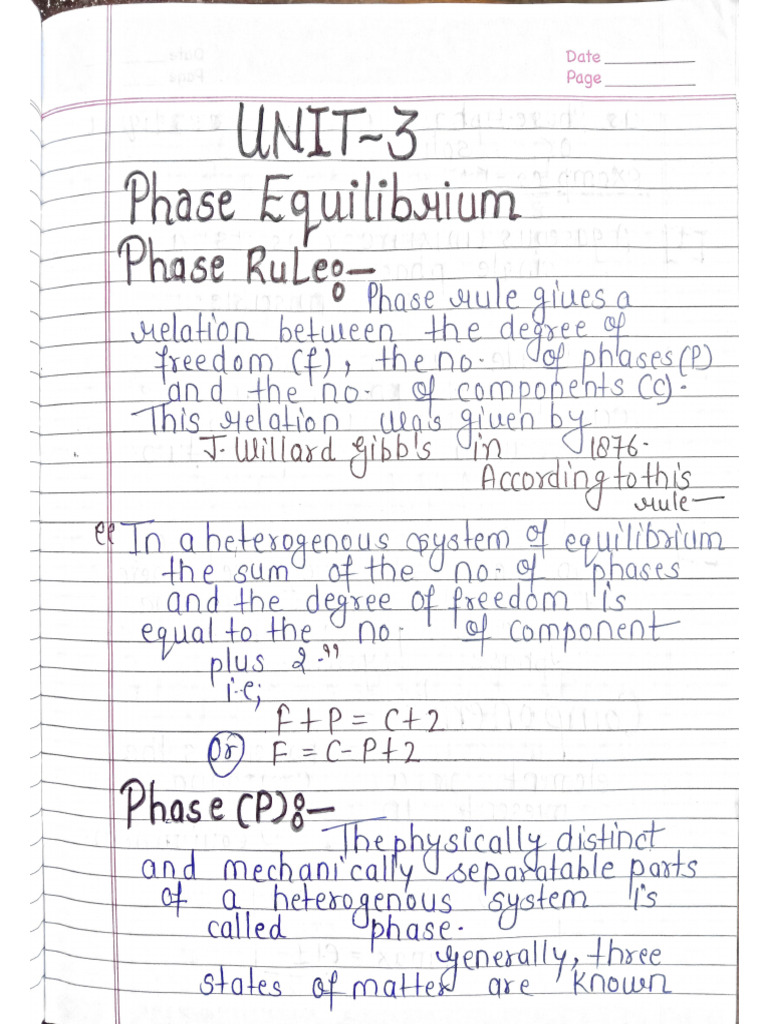 Date
Page
UNIT~3
Phase Equilibrium
Phase Rule:-
Phase rule gives a
relation between the degree of
freedom (f), the no. of phases (P)
and the no. of components (C).
This relation was given by
J. Willard Gibb's in 1876.
According to this
rule—
"In a heterogenous system of equilibrium
the sum of the no. of phases
and the degree of freedom is
equal to the no. of component
plus 2."
i.e;
F + P = C + 2
Or F = C - P + 2
Phase (P):-
The physically distinct
and mechanically separatable parts
of a heterogenous system is
called phase.
Generally, three
states of matter are known